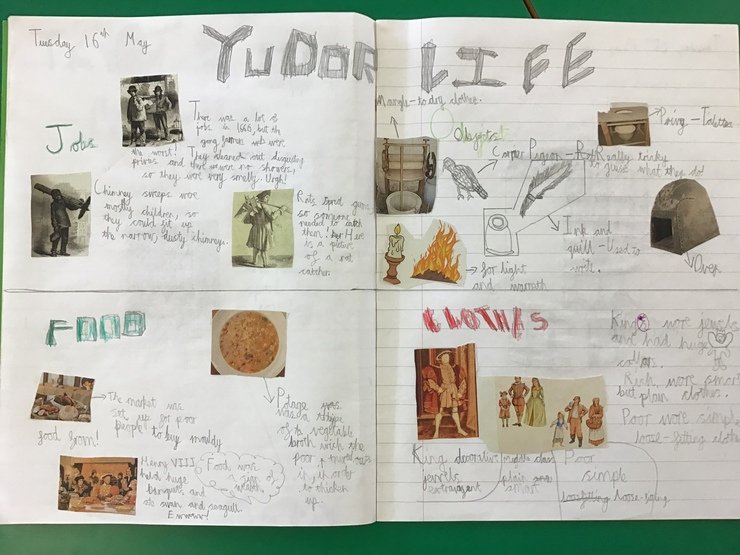 Tuesday 16th May
TUDOR LIFE
Jobs
There was a lot of
jobs in 1666, but the
gong farmers wh were
the worst!
They cleaned out disgusting
privies and there were no showers,
so they were very smelly. Urgh!
Chimney sweeps were
mostly children, so
they could fit up
the narrow, chimney.
Rats spred germs
so someone
needed to catch
them! Here
is a picture
of a rat
catcher.
Mangle - to dry clothes.
Objects
Privy - Toilet
Carrier Pigeon -
Really tricky
to guise what they do!
Ink and
quill - Used to
write.
for light
and warmth
Oven
FOOD
The market was
set up for poor
people to buy mouldy
food from!
Potage was
a type
of vegetable
broth wich the
poor
in in order
to thicken
up.
Henry VIII
held huge
banquets and
ate swan and seagull.
Ewwww!
Food was
a sign
of wealth
CLOTHES
Kings wore jewels
and had huge
collars.
Rich wore smart
but plain clothes.
Poor wore simple
loose-fitting clothes
King decorative
jewels
extravagent
middle class
plain
smart
Poor
simple